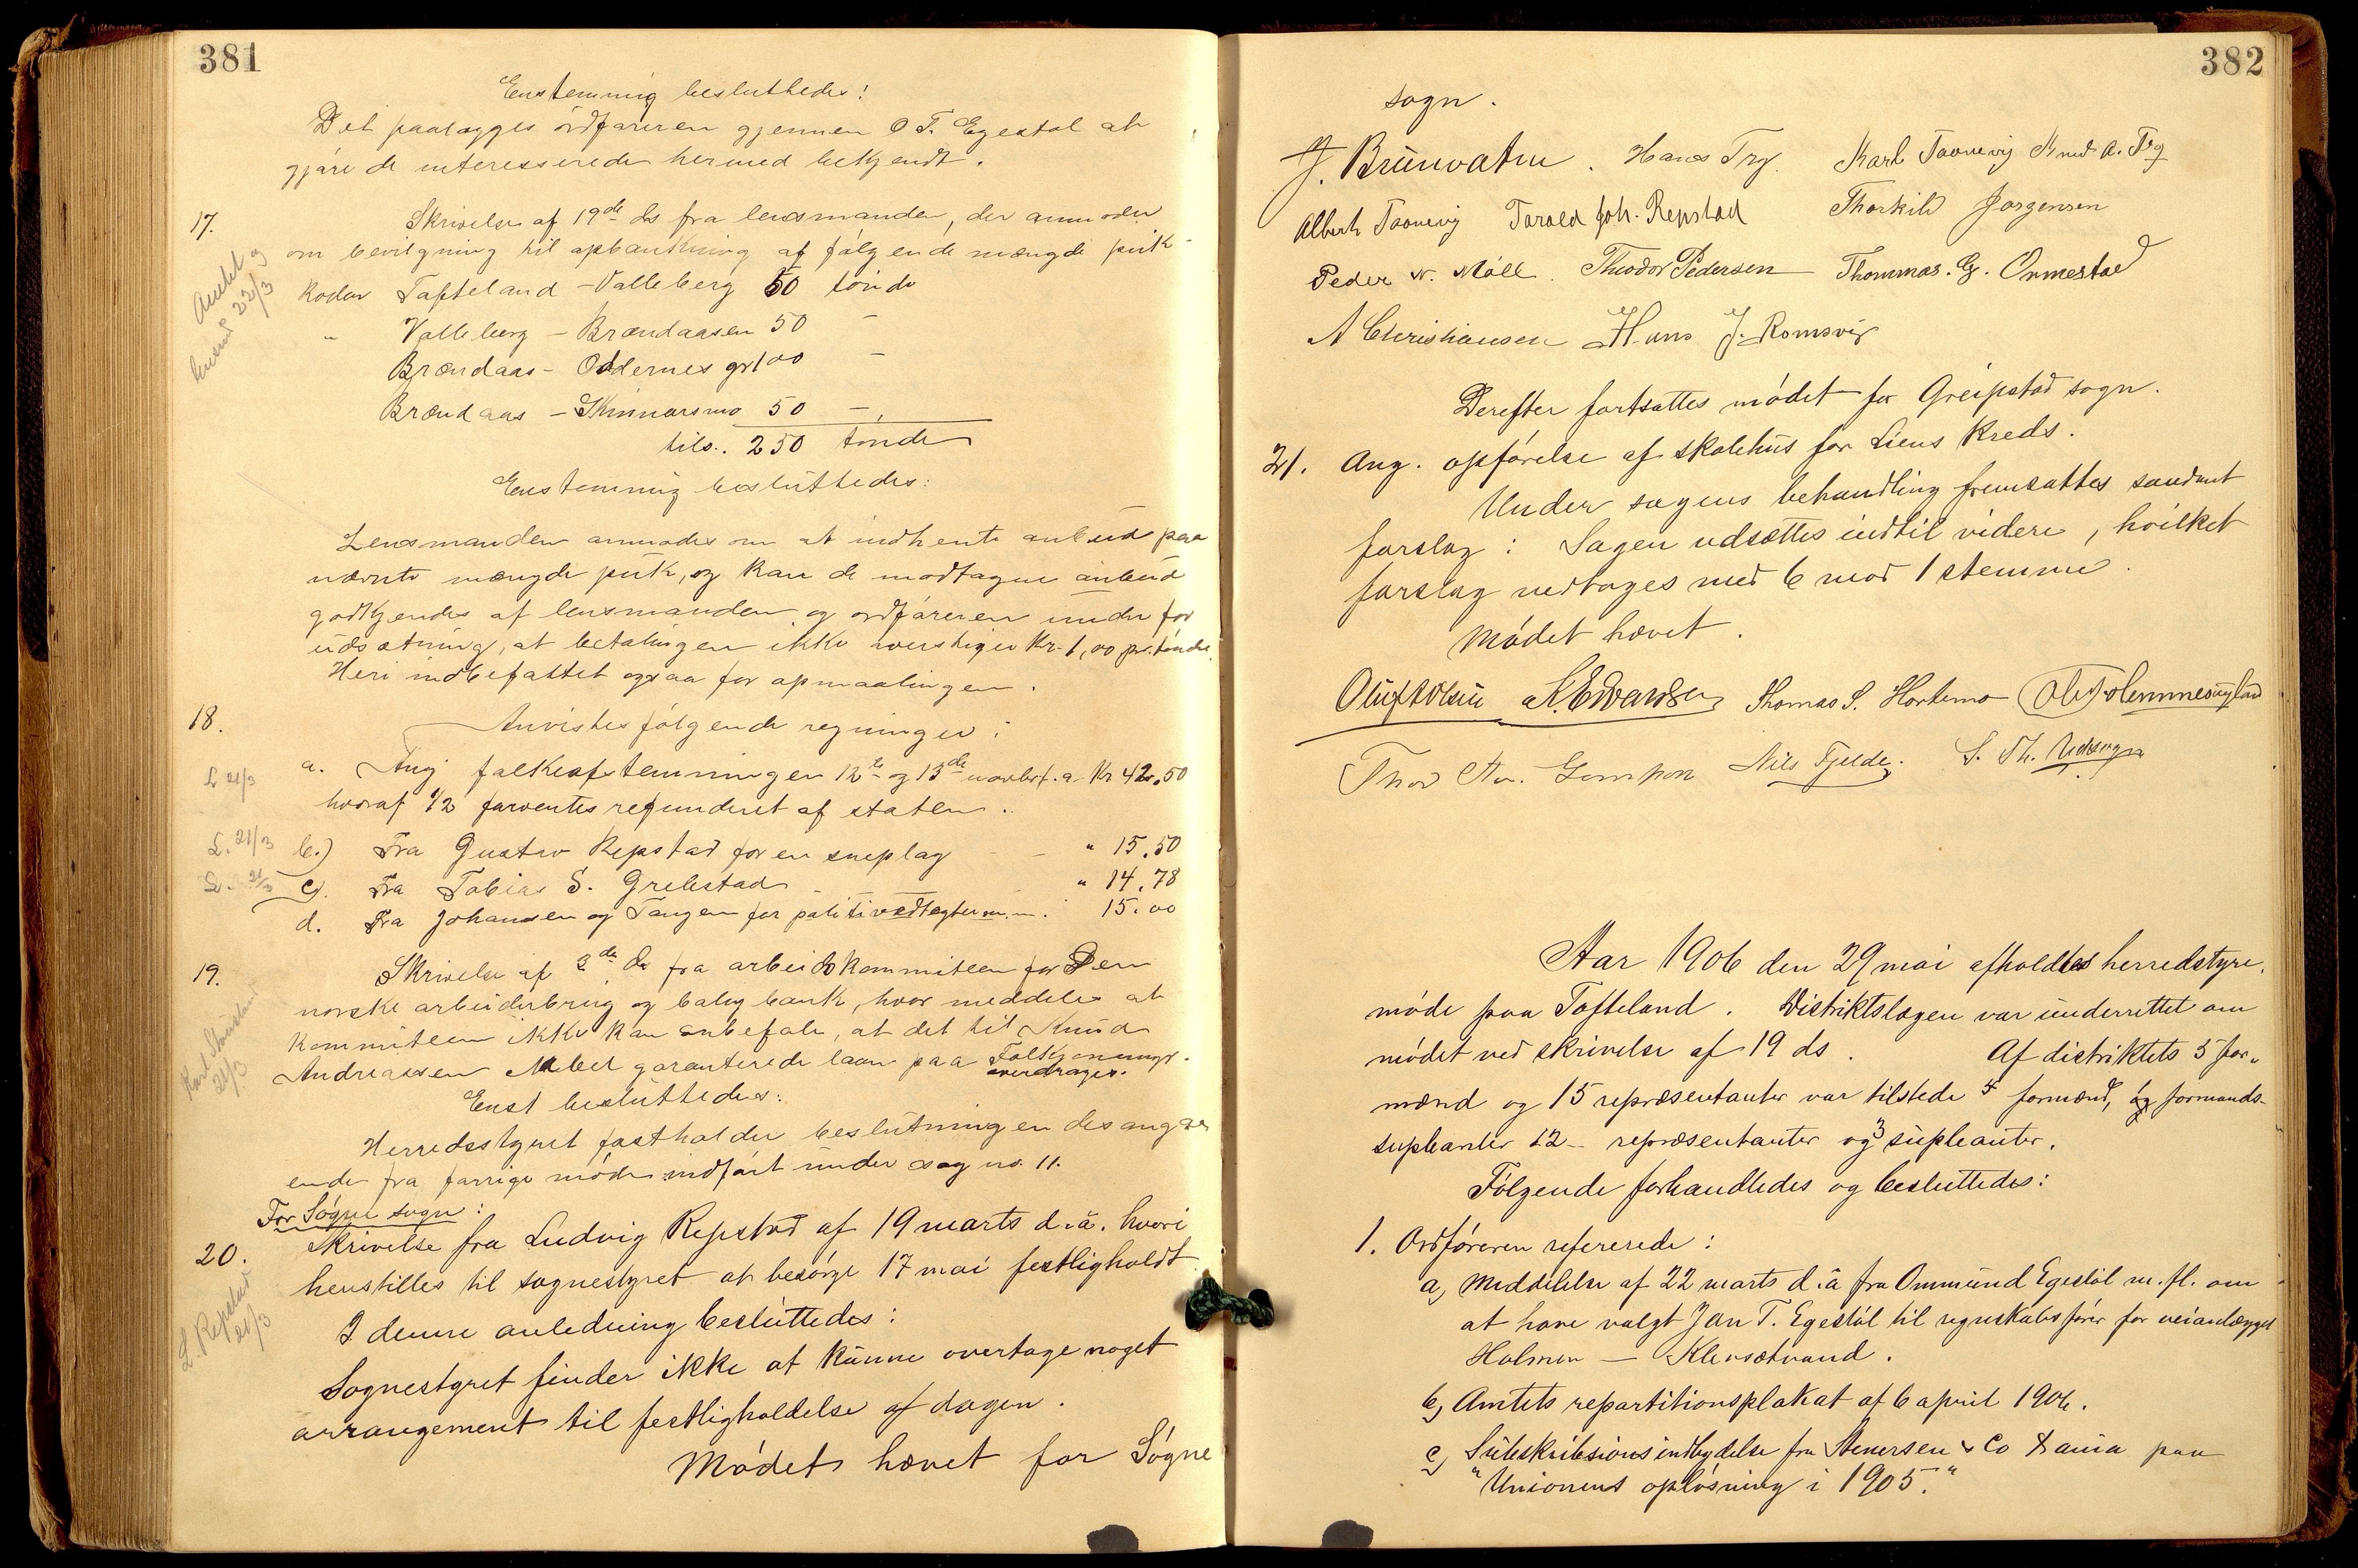 381
Enstemmig besluttedes:
Det paalægges ordføreren gjennem O T. Egestøl at
gjøre de interesserede hermed bekjendt.
17. Skrivelse af 19de ds fra lensmanden, der anmoder
om bevilgning til opbankning af følgende mængde puk
Roder Tofteland - Valleberg 50 tønde
" Valleberg - Brændaasen 50 -
Brændaas - Oddernes gr 100 -
Brændaas - Skinnarsmo 50 -
tils. 250 tønde
Enstemmig besluttedes:
Lensmanden anmodes om at indhente anbud paa
nævnte mængde puk, og kan de modtagne anbud
godkjendes af lensmanden og ordføreren under for
udsætning, at betalingen ikke overstiger Kr. 1,00 pr. tønde.
Heri indbefattet ogsaa for opmaalingen.
18. Anvistes følgende regninger:
L 21/3 a. Ang folkeafstemningen 12te og 13de novbr f. a. Kr 42,50
hvoraf 1/2 forventes refunderet af staten.
L. 21/3 b.) Fra Gustav Repstad for en sneplog - " 15,50
L. 21/3 c). Fra Tobias S. Grebstad - " 14,78
d. Fra Johansen og Tangen for politivedtægter m. m. 15.00
19. Skrivelse af 3de ds fra arbeidskommiteen for Den
norske arbeiderbrug og boligbank, hvor meddeles at
kommiteen ikke kan anbefale, at det til Knud
Andreassen Mebel garanterede laan paa
overdrages.
21/3
Enst besluttedes:
Herredsstyret fastholder beslutningen desangaa
ende fra forrige møde indført under sag no. 11.
For Søgne sogn:
20. Skrivelse fra Ludvig Repstad af 19 marts d. å. hvori
henstilles til sognestyret at besørge 17 mai festligholdt.
L. Repstad
21/3
I denne anledning besluttedes:
Sognestyret finder ikke at kunne overtage noget
arrangement til festligholdelse af dagen.
Mødet hævet for Søgne
382
sogn.
J. Brunvatne. Hans Try. Karl Taanevig Knud A. Try
Albert Taanevig Torald Joh. Repstad Thorkild Jørgensen
Peder N. Møll. Theodor Pedersen Thommas. G. Ormestad
A Christiansen Hans J. Romsvig
Derefter fortsattes mødet for Greipstad sogn.
21. Ang. opførelse af skolehus for Liens Kreds.
Under sagens behandling fremsattes saadant
forslag: Sagen udsættes indtil videre, hvilket
forslag vedtoges med 6 mod 1 stemme.
Mødet hævet.
Oluf Olsen K. Edvardsen Thomas S. Hortemo
Nils Fjelde. S. Th.
Aar 1906 den 29 mai afholdtes herredstyre,
møde paa Tofteland. Distriktslægen var underrettet om
mødet ved skrivelse af 19 ds. Af distriktets 5 for„
mænd og 15 repræsentanter var tilstede 4 formænd, og formands-
supleanter 12 - repræsentanter og 3 supleanter.
Følgende forhandledes og besluttedes:
1. Ordføreren refererede:
a, Meddelelse af 22 marts d. å fra Ommund Egestøl m. fl. om
at have valgt Jan T. Egestøl til regnskabsfører for veianlægget
Holmen - Kleivsetvand.
b, Amtets repartitionsplakat af 6 april 1906.
c, Subskribsionsindbydelse fra Stenersen & Co Xania paa
"Unionens opløsning i 1905."